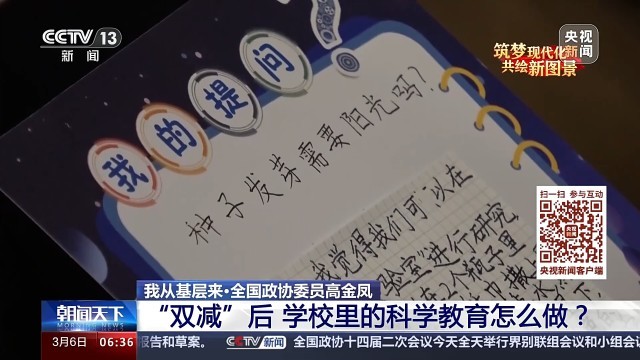 CCTV 13
新闻
央视
新闻
筑梦现代化
共绘新图景
我的提问
种子发芽需要阳光吗?
我觉得我们可以在
验室"进行研究
2个瓶子里
扫一扫 参与互动
央视新闻客户端
我从基层来·全国政协委员高金凤
朝闻天下
MORNING NEWS
“双减”后 学校里的科学教育怎么做?
3月6日 06:36 报告和草案。 CCTV新闻 全国政协十四届二次会议今天全天举行界别联组会议和小组会